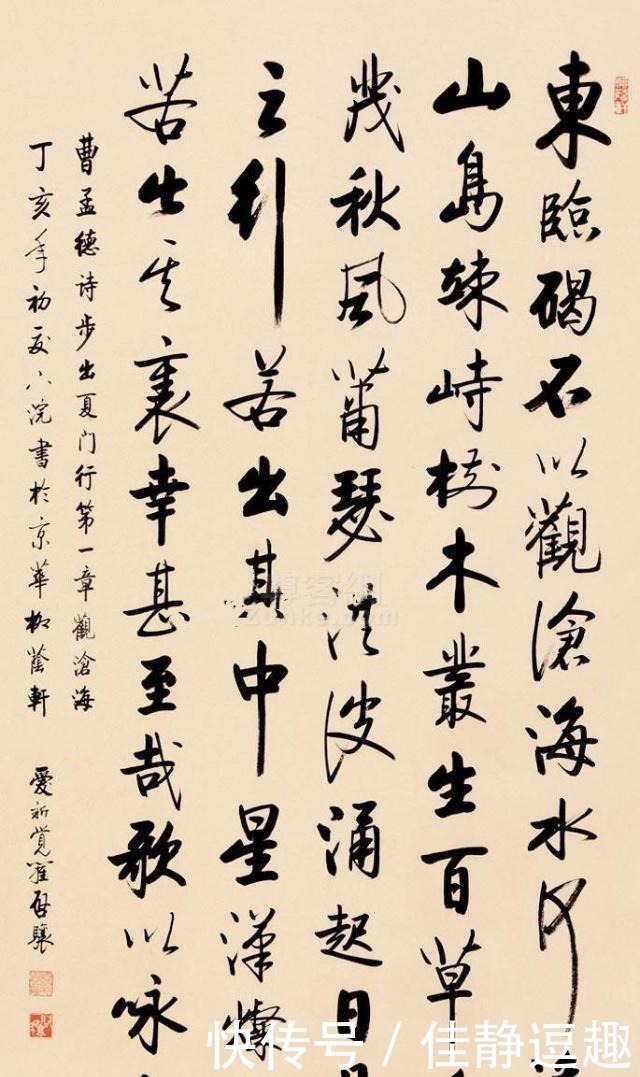 東臨碣石以觀滄海水何
山島竦峙樹木叢生百草
茂秋風蕭瑟洪波涌起日
之行若出其中星漢燦
若出其裏幸甚至哉歌以咏
曹孟德诗步出夏门行第一章觀滄海
丁亥年初夏浣書於京華柳蔭軒 愛新覺羅啓驤
尊客網
Zunke.com
快传号 / 佳静逗趣